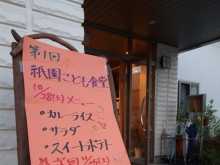 第1回
祇園こども食堂
10/28(土)メニュー
・カレーライス
・サラダ
・スイートポテト